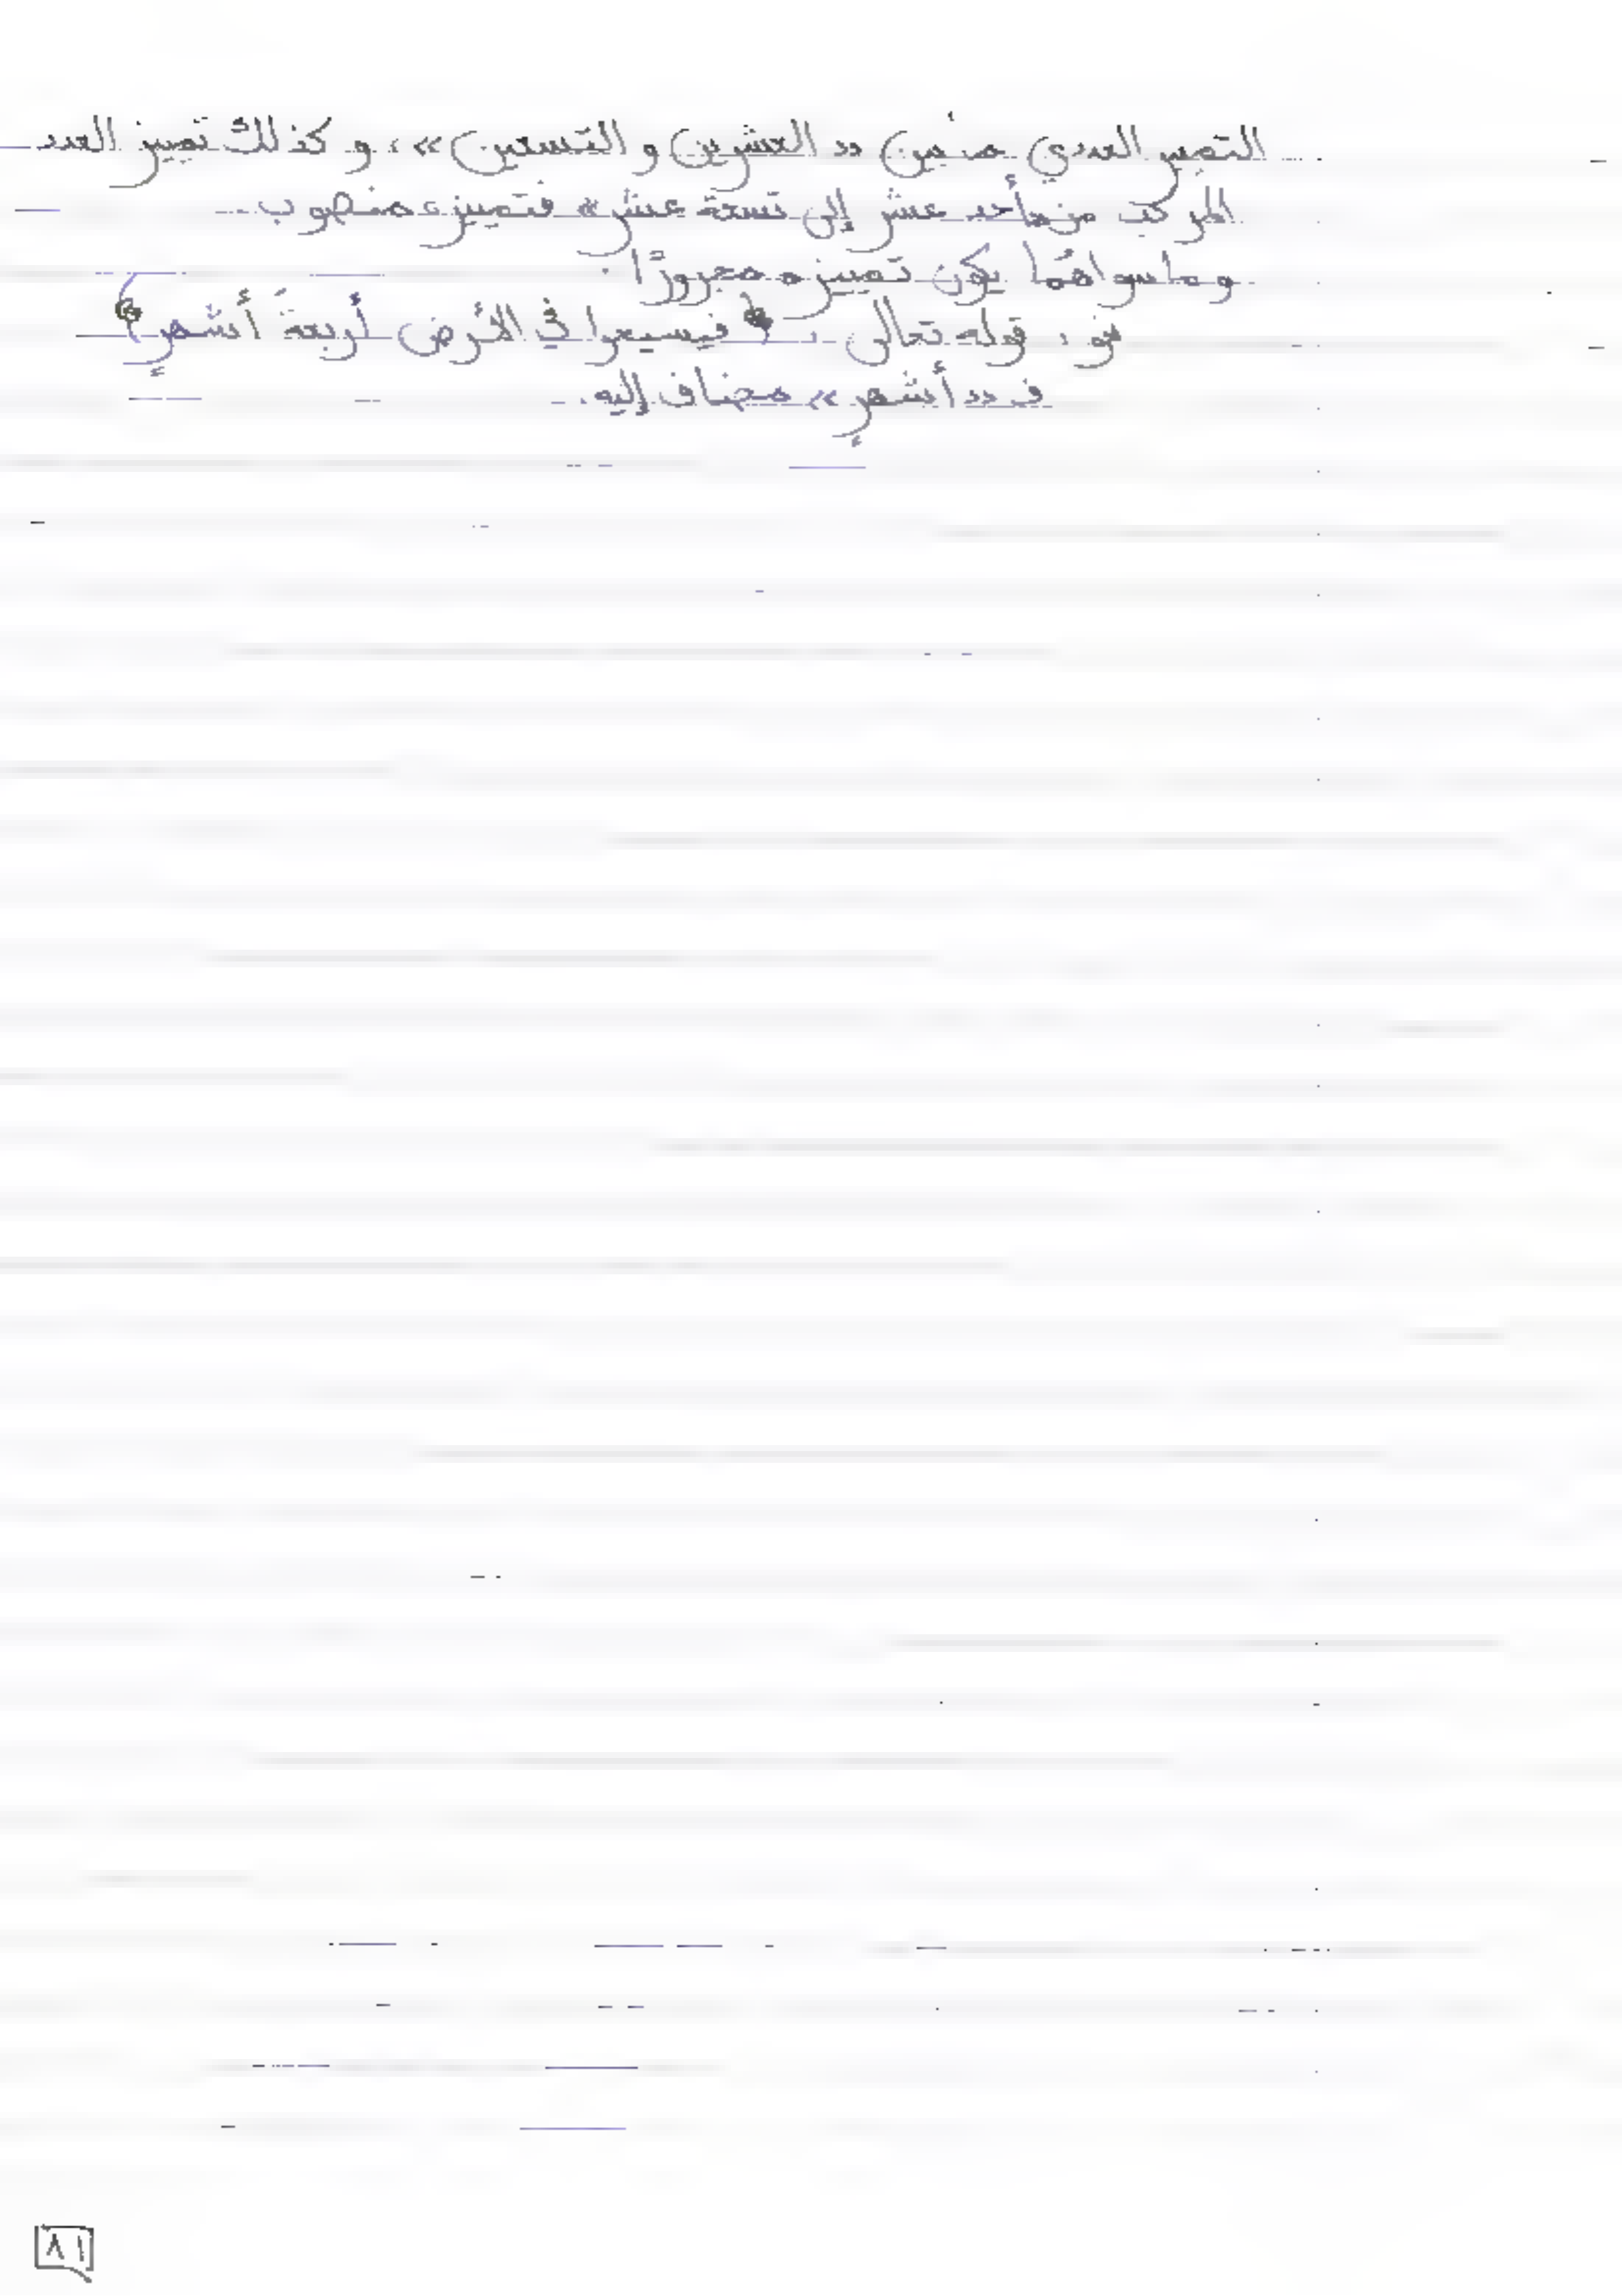 التمييز العددي من بين «العشرين و التسعين»، و كذلك تمييز العدد
المركب من أحد عشر إلى تسعة عشر» فتمييزه منصوب.
وما سواهما يكون تمييزه مجرورًا.
نحو: قوله تعالى: ﴿فسيحوا في الأرض أربعةَ أشهرٍ﴾
ف «أشهرٍ» مضاف إليه.
٨١